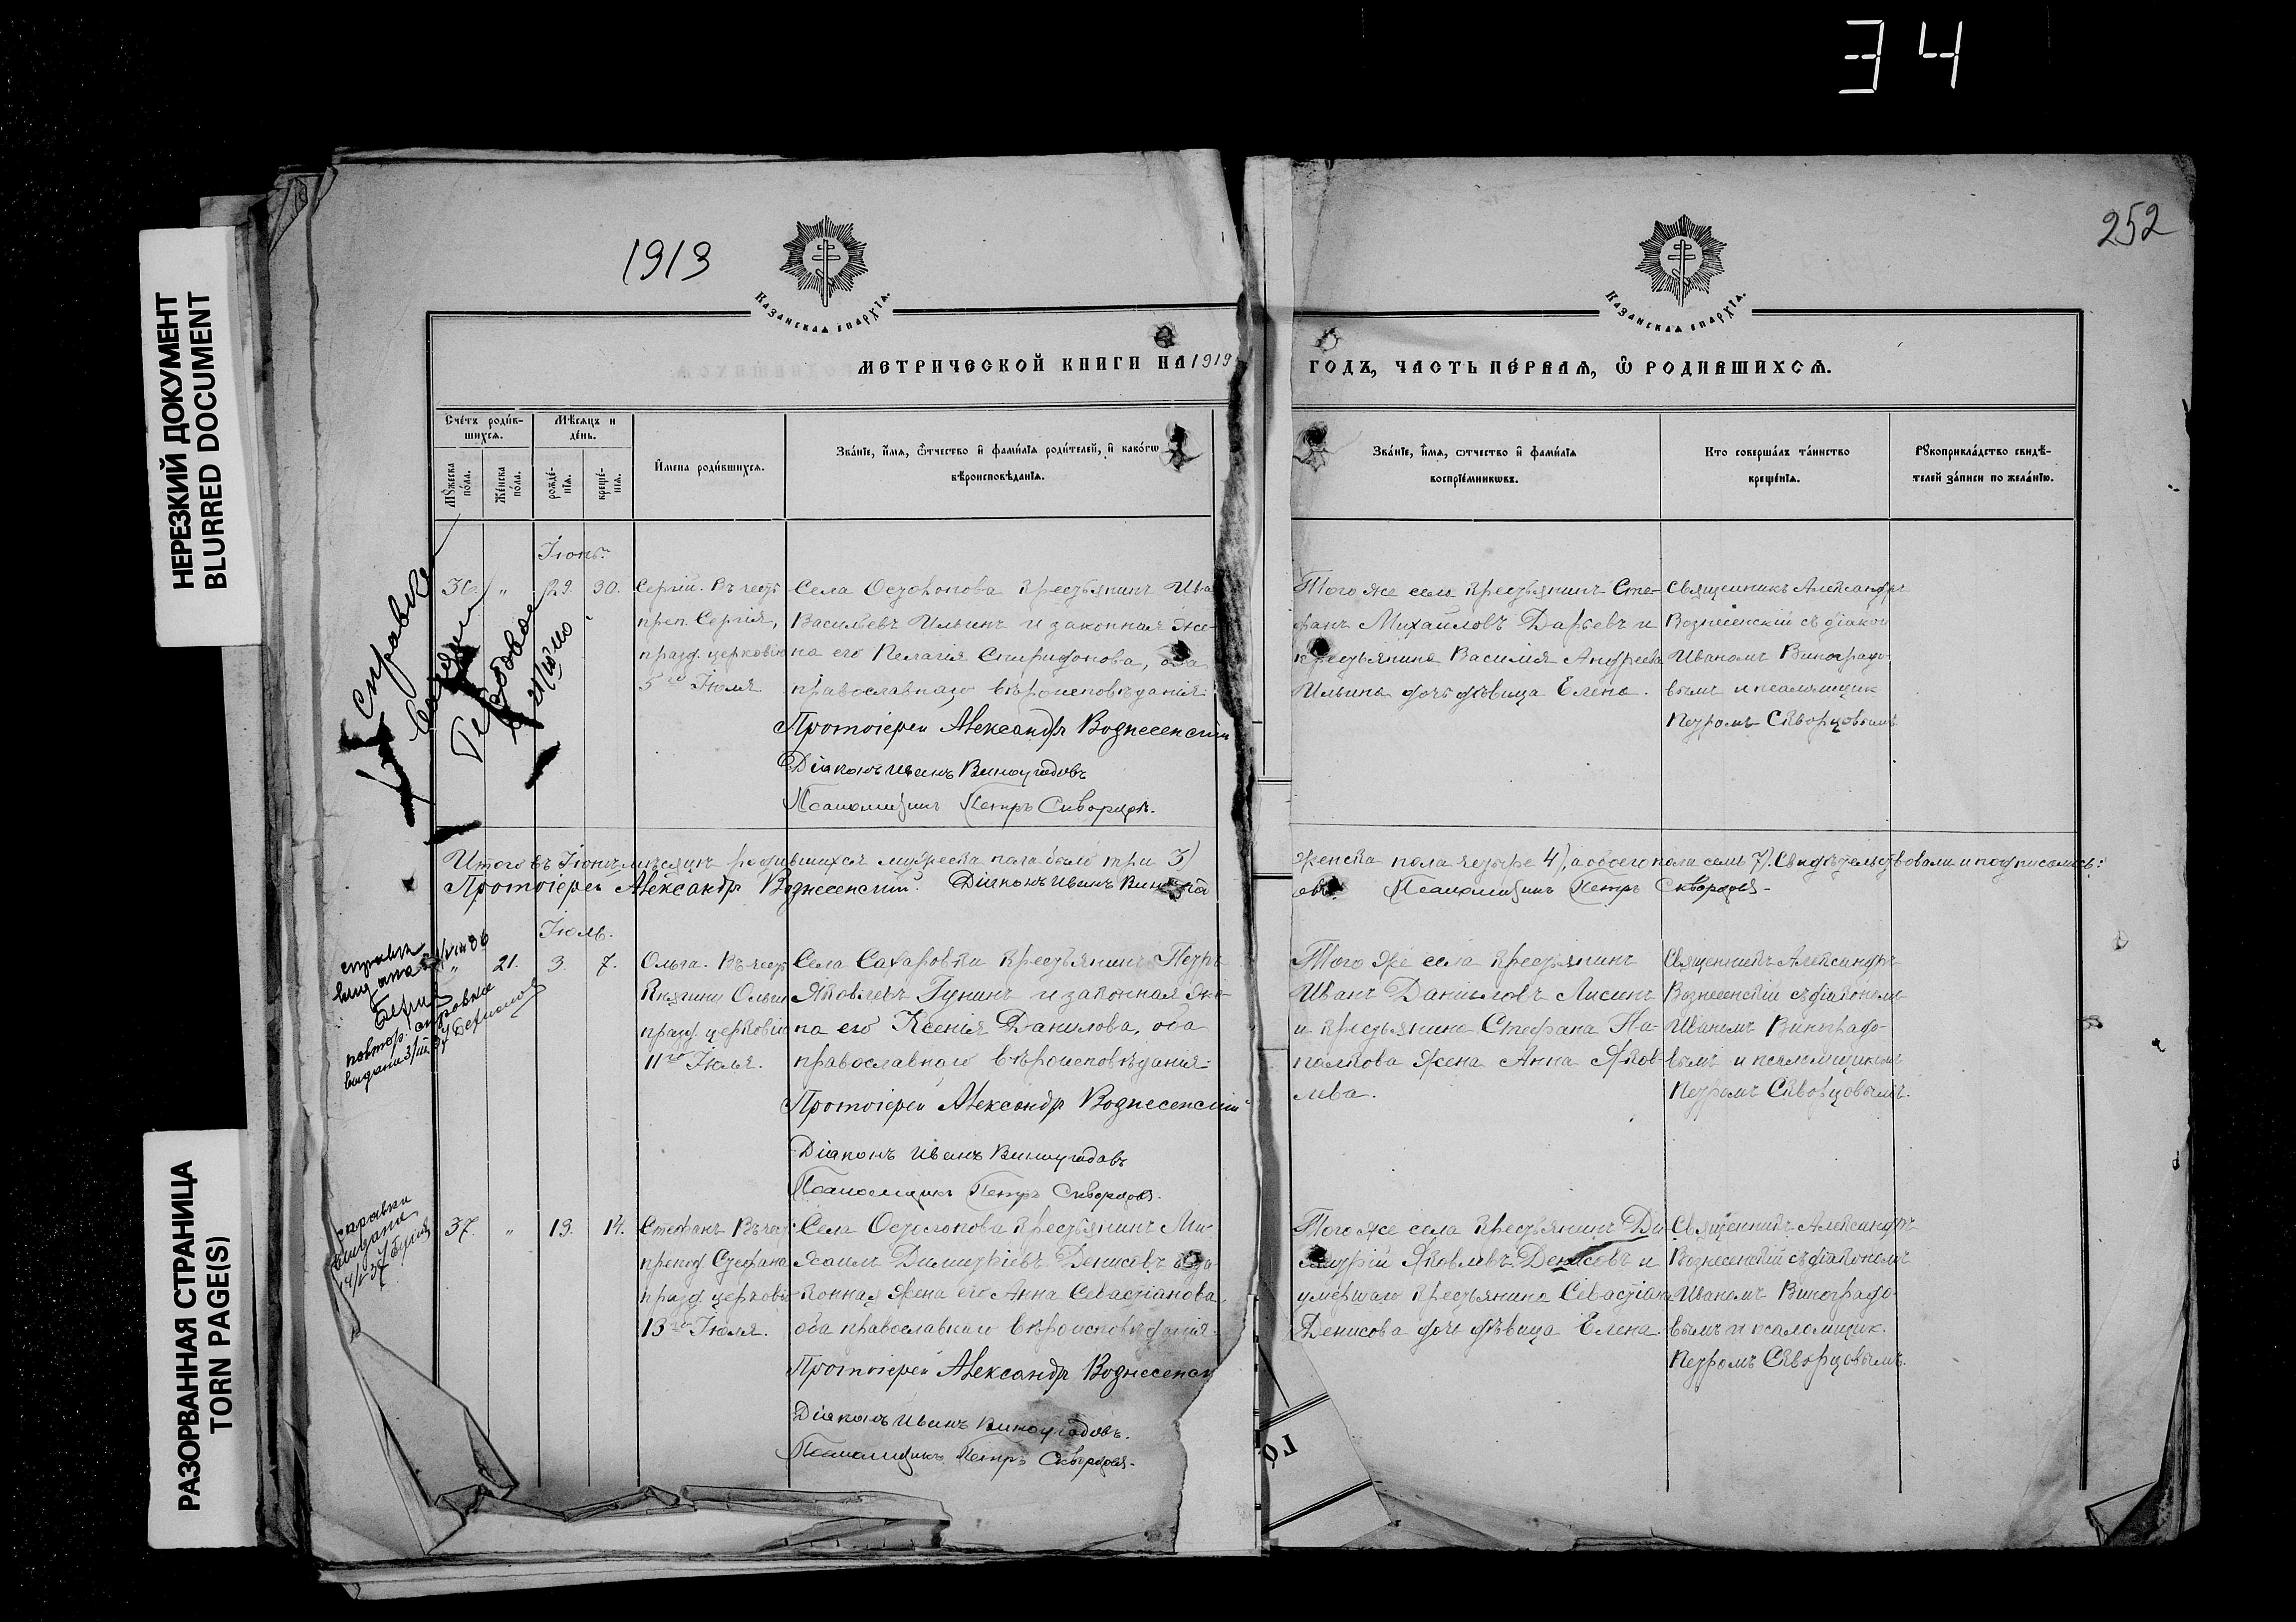 34
НЕРЕЗКИЙ ДОКУМЕНТ
BLURRED DOCUMENT
РАЗОРВАННАЯ СТРАНИЦА
TORN PAGE(S)
1919
252
КАЗАНСКАѦ ЕПАРХІѦ.
КАЗАНСКАѦ ЕПАРХІѦ.
МЕТРИЧЕСКОЙ КНИГИ НА 1919
ГОДЪ, ЧАСТЬ ПЕ́РВАѦ, Ѽ РОДИВШИХСѦ.
Сче́тъ роди́в-
шихсѧ.
Мѣ́сѧцъ и
де́нь.
Мꙋ́жеска
по́ла.
Же́нска
по́ла.
рожде́-
нїѧ.
креще́-
нїѧ.
И҆мена роди́вшихсѧ.
Зва́нїе, и҆́мѧ, ѻ҆́тчество и҆ фами́лїѧ роди́телей, и҆ како́гѡ
вѣроисповѣ́данїѧ.
Зва́нїе, и҆́мѧ, ѻ҆́тчество и҆ фами́лїѧ
воспрїе́мникѡвъ.
Кто соверша́лъ та́инство
креще́нїѧ.
Рꙋкоприкла́дство свидѣ́-
телей за́писи по жела́нїю.
Іюнь.
36. " 29. 30.
Сергій. Въ честь
преп. Сергія,
празд. церковію
5го Іюля
Села Остолопова крестьянинъ Ива
Васильевъ Ильинъ и законная же-
на его Пелагія Спиридонова, оба
православнаго вѣроисповѣданія:
Протоіерей Александръ Вознесенскій
Діаконъ Иванъ Виноградовъ
Псаломщикъ Петръ Скворцовъ.
Того же села крестьянинъ Сте-
фанъ Михайловъ Дарьевъ и
крестьянина Василія Андреева
Ильина дочь дѣвица Елена.
Священникъ Александръ
Вознесенскій съ діакон
Иваномъ Виноградо-
вымъ и псаломщик
Петромъ Скворцовымъ.
справка
Итого въ Іюнѣ мѣсяцѣ родившихся мужеска пола было три 3)
женска пола четыре 4), а обоего пола семь 7). Свидѣтельствовали и подписались:
Протоіерей Александръ Вознесенскій. Діаконъ Иванъ Виногра
овъ. Псаломщикъ Петръ Скворцовъ
Іюль.
справка
выдана
повтор. справка
выдана
" 21. 3. 7.
Ольга. Въ честь
Княгини Ольги
празд. церковію
11го Іюля.
Села Сахаровки крестьянинъ Петръ
Яковлевъ Гунинъ и законная же-
на его Ксенія Данилова, оба
православнаго вѣроисповѣданія:
Протоіерей Александръ Вознесенскій
Діаконъ Иванъ Виноградовъ
Псаломщикъ Петръ Скворцовъ.
Того же села крестьянинъ
Иванъ Даниловъ Лисинъ
и крестьянина Стефана
жена Анна Яков-
лева.
Священникъ Александръ
Вознесенскій съ діакономъ
Иваномъ Виноградо-
вымъ и псаломщикомъ
Петромъ Скворцовымъ.
справка
выдана
37. " 13. 14.
Стефанъ. Въ чест
препод. Стефана
празд. церковію
13го Іюля.
Села Остолопова крестьянинъ Ми-
хаилъ Димитріевъ Денисовъ и за-
конная жена его Анна Севастіанова,
оба православнаго вѣроисповѣданія.
Протоіерей Александръ Вознесенск
Діаконъ Иванъ Виноградовъ.
Псаломщикъ Петръ Скворцовъ.
Того же села крестьянинъ Ди-
митрій Яковлевъ Денисовъ и
умершаго крестьянина Севастіана
Денисова дочь дѣвица Елена.
Священникъ Александръ
Вознесенскій съ діакономъ
Иваномъ Виноградо-
вымъ и псаломщик.
Петромъ Скворцовымъ.